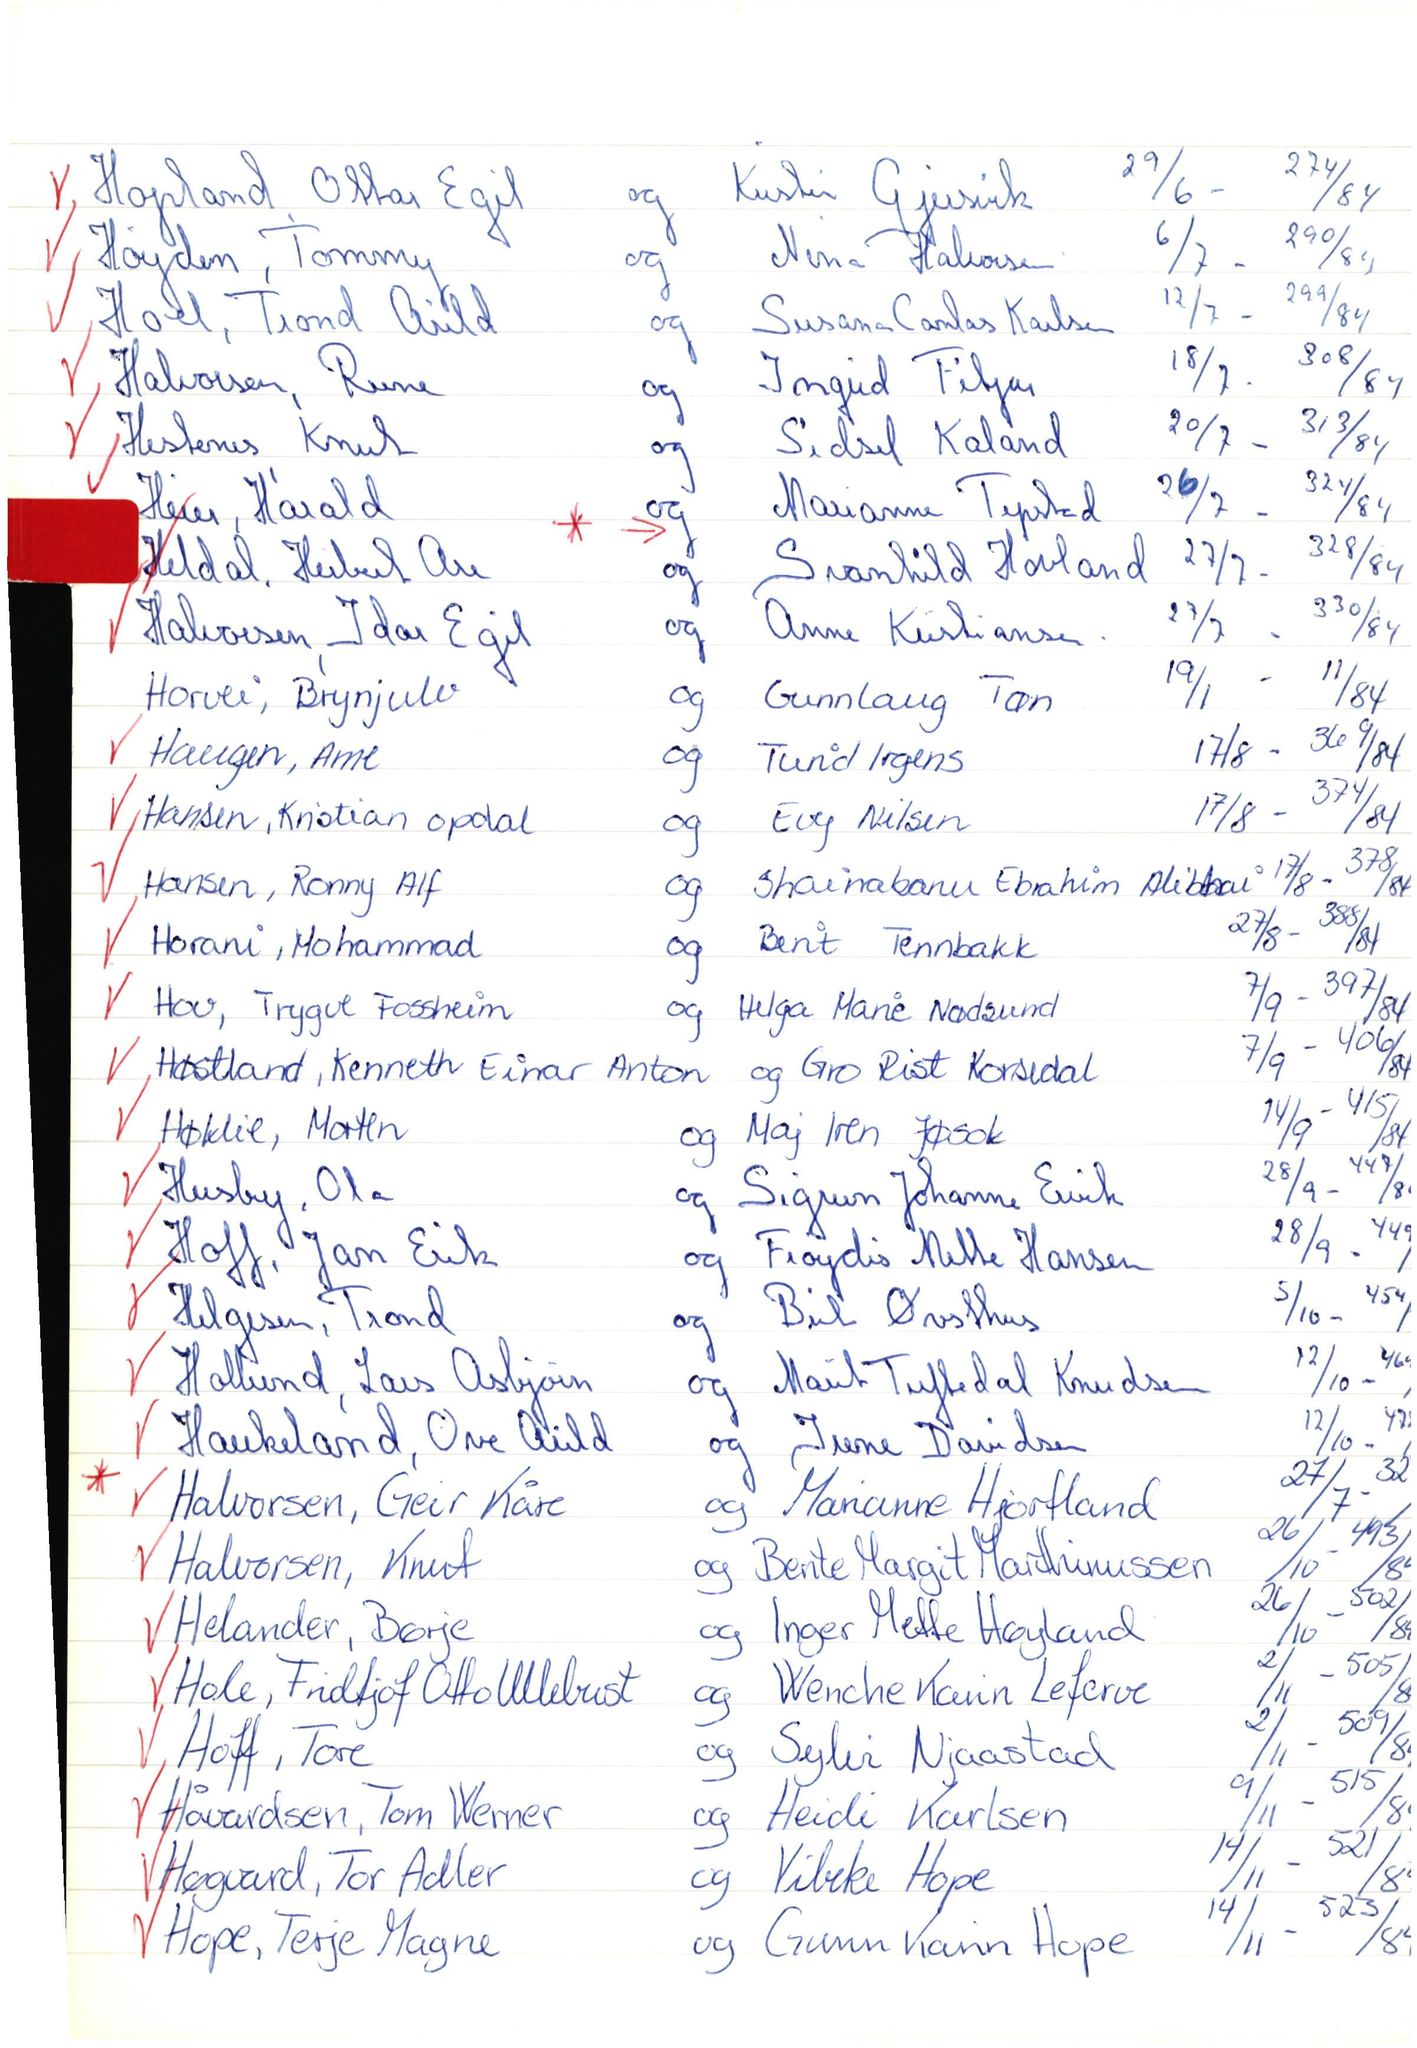 Høyland, Ottar Egil og Kirstin Gjersvik 29/6 - 274/84
Höyden, Tommy og Nina Halvorsen 6/7 - 290/84
Hoel, Trond Arild og Susana Karlsen 12/7 - 299/84
Halvorsen, Rune og Ingrid Fitjar 18/7 - 308/84
Hestenes Knut og Sidsel Kaland 20/7 - 313/84
Heier, Harald * → og Marianne Tepstad 26/7 - 324/84
Heldal, Herbert Are og Svanhild Hovland 27/7 - 328/84
Halvorsen, Idar Egil og Anne Kristiansen 27/7 - 330/84
Horvei, Brynjulv og Gunnlaug Tøn 19/1 - 11/84
Haugen, Arne og Turid Irgens 17/8 - 369/84
Hansen, Kristian Opdal og Evy Nilsen 17/8 - 374/84
Hansen, Ronny Alf og Shainabanu Ebrahim Alibhai 17/8 - 378/84
Horani, Mohammad og Berit Tennbakk 27/8 - 388/84
Hov, Trygve Fossheim og Helga Marie Nødsund 7/9 - 397/84
Høstland, Kenneth Einar Anton og Gro Rist Korsedal 7/9 - 406/84
Høklie, Morten og Maj Iren Jøsok 14/9 - 415/84
Husby, Ola og Sigrun Johanne Ervik 28/9 - 447/8
Hoff, Jan Erik og Fröydis Mette Hansen 28/9 - 449/
Helgesen, Trond og Brit Øvsthus 5/10 - 454/
Hollund, Lars Asbjörn og Marit Tuftedal Knudsen 12/10 - 464
Haukeland, Ove Arild og Irene Davidsen 12/10 - 472
* Halvorsen, Geir Kåre og Marianne Hjortland 27/7 - 32
Halvorsen, Knut og Bente Margit Marthinussen 26/10 - 493/84
Helander, Børje og Inger Mette Høyland 26/10 - 502/84
Hole, Fridtjof Otto Ullebust og Wenche Karin Leferve 2/11 - 505/8
Hoff, Tore og Sylvi Njaastad 2/11 - 509/84
Håvardsen, Tom Werner og Heidi Karlsen 9/11 - 515/84
Høgvard, Tor Adler og Vibeke Hope 14/11 - 521/84
Hope, Terje Magne og Gunn Karin Hope 14/11 - 523/84